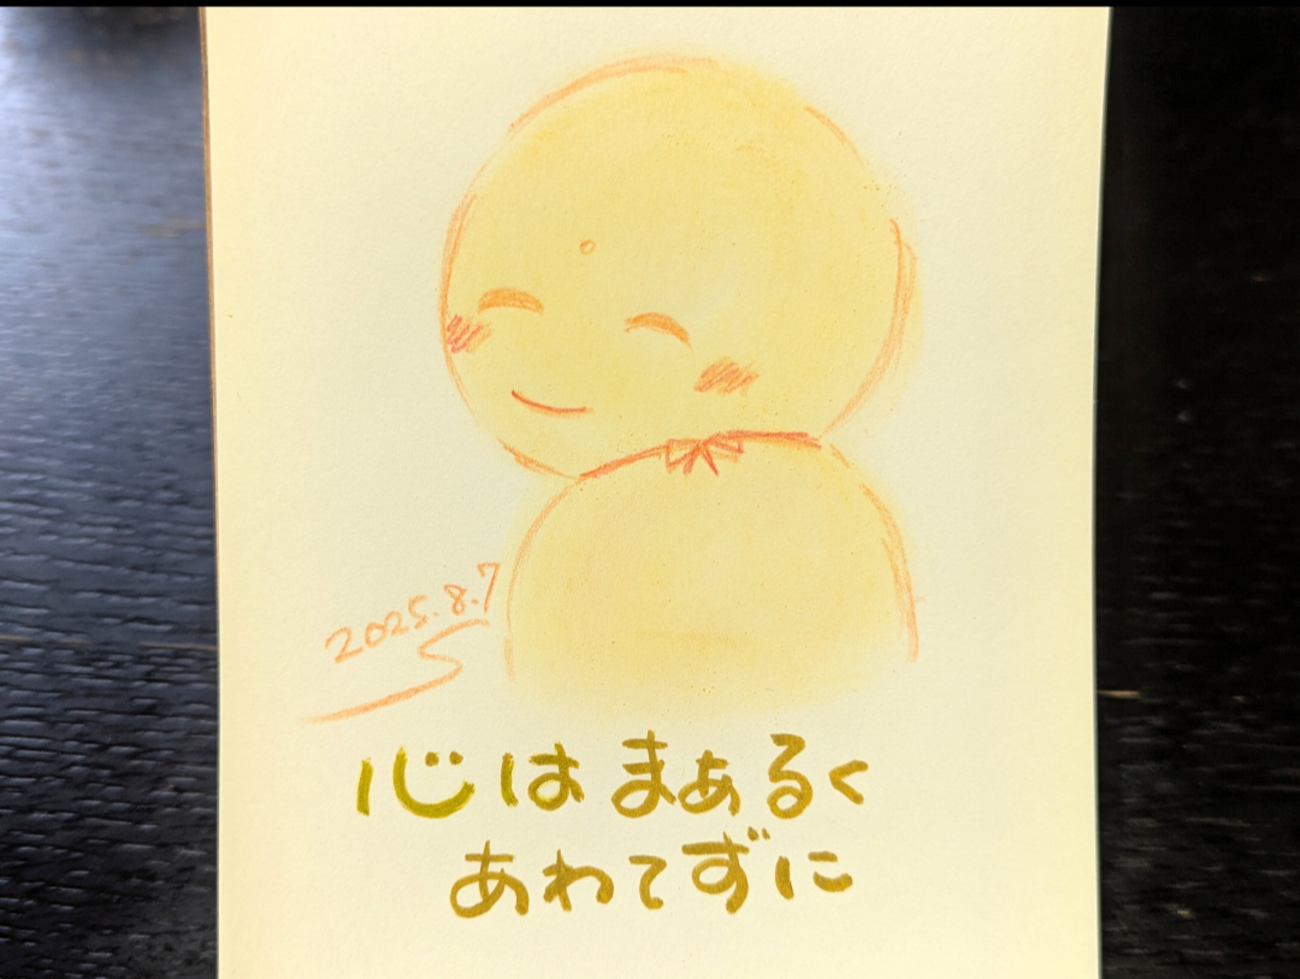 2025.8.7
心は まぁるく
あわてずに